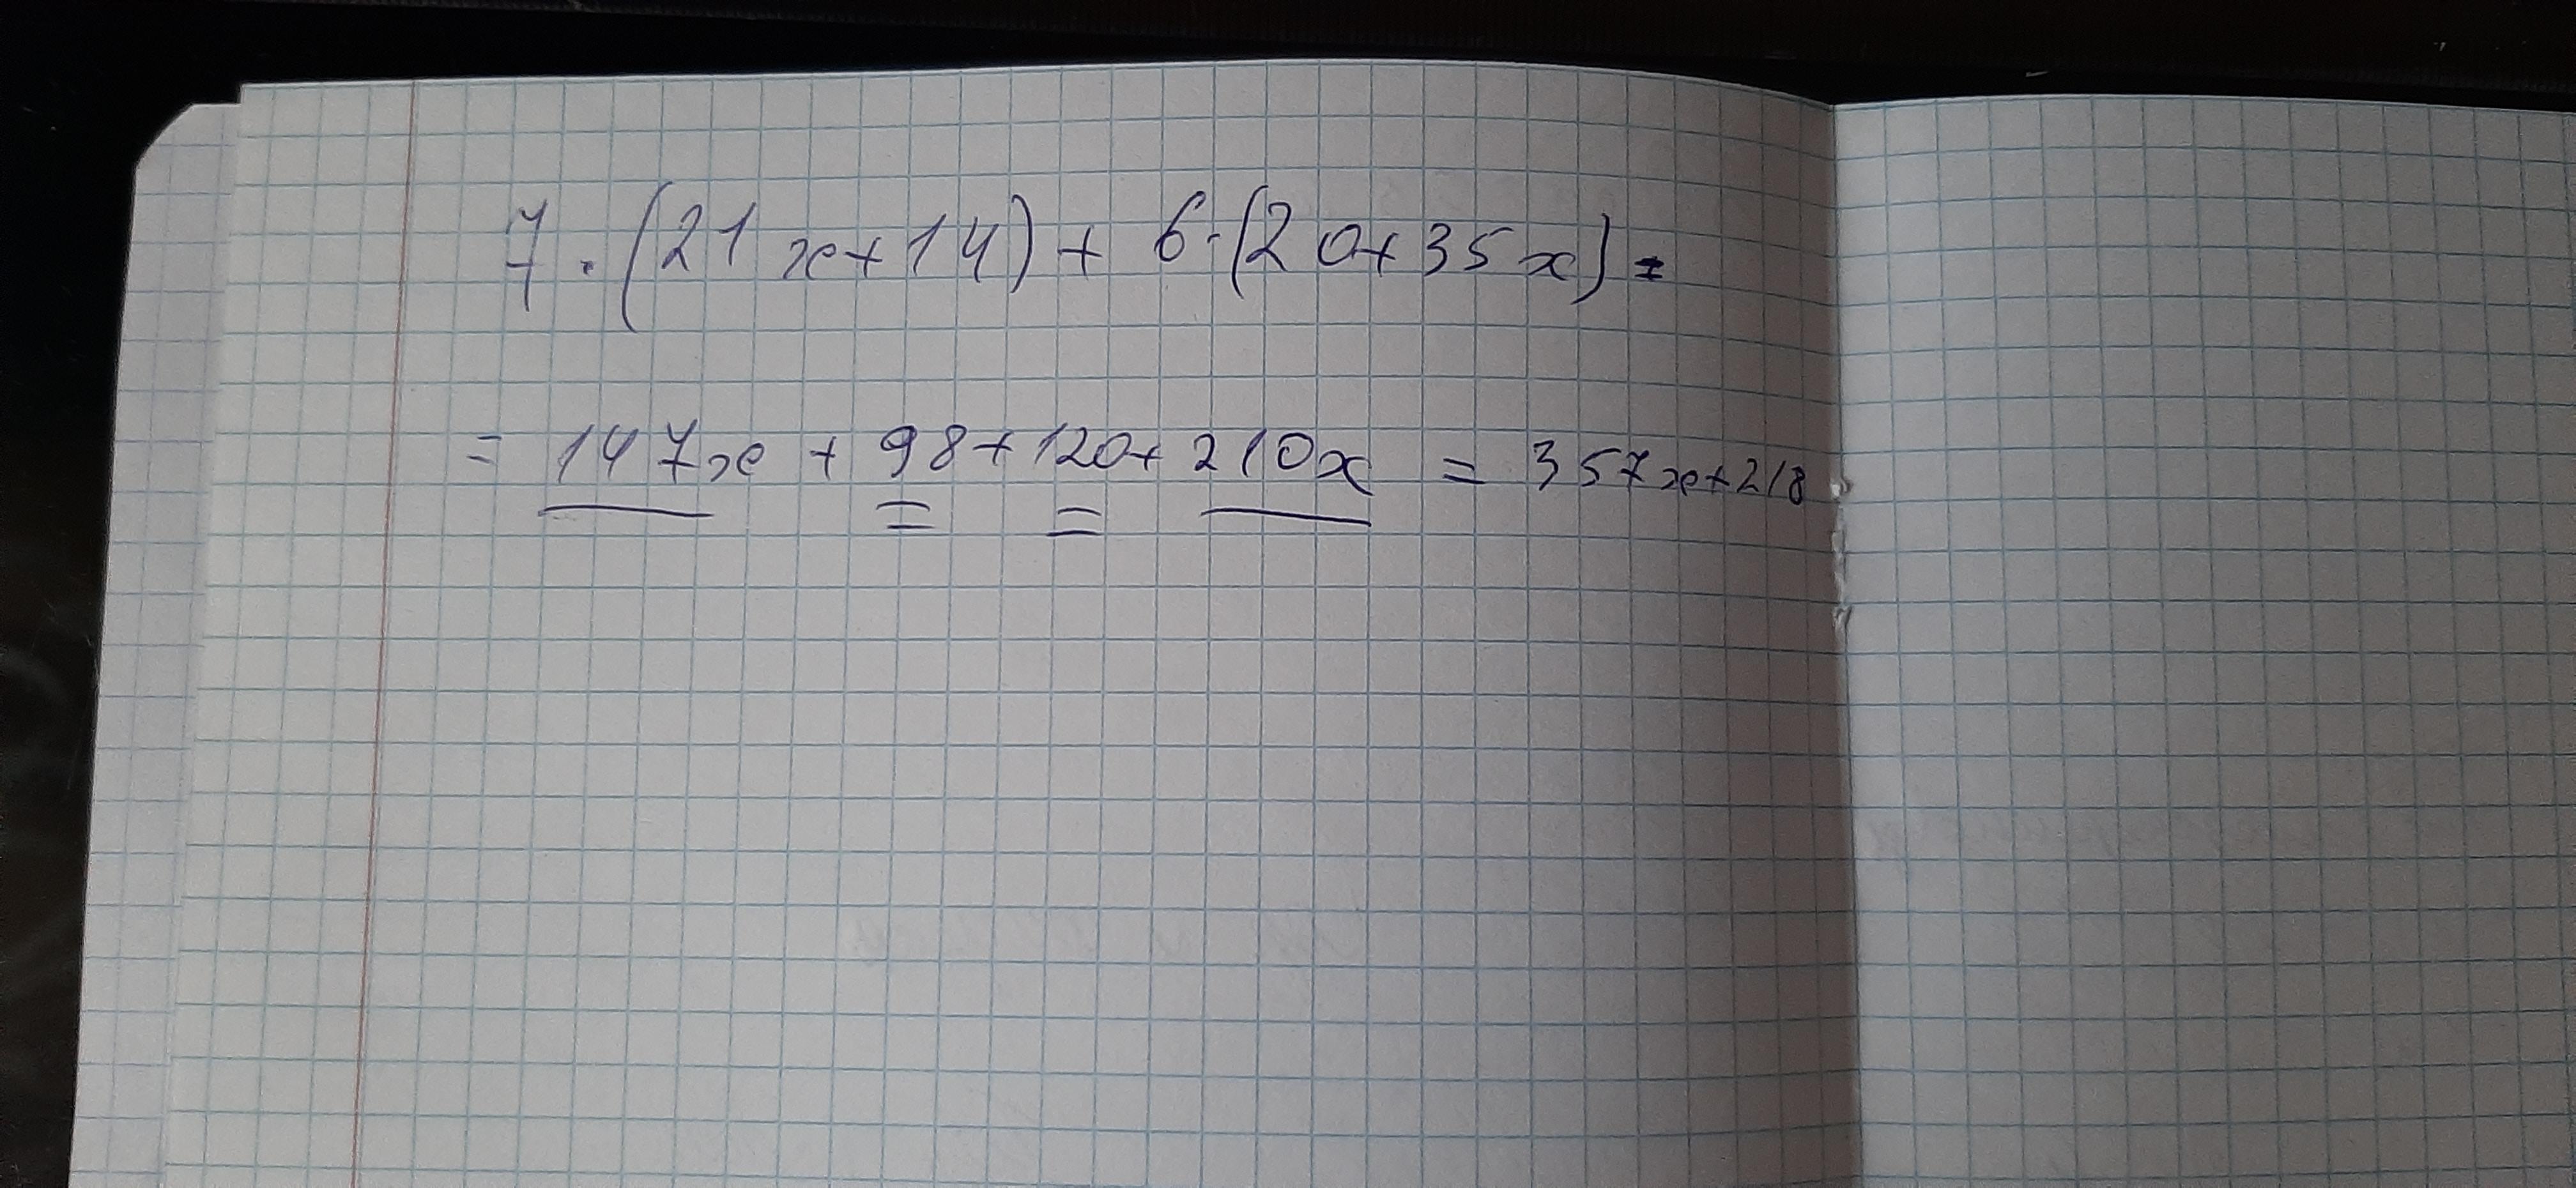 7 · (21x+14) + 6·(20+35x) =
= 147x + 98+120+210x = 357x+218